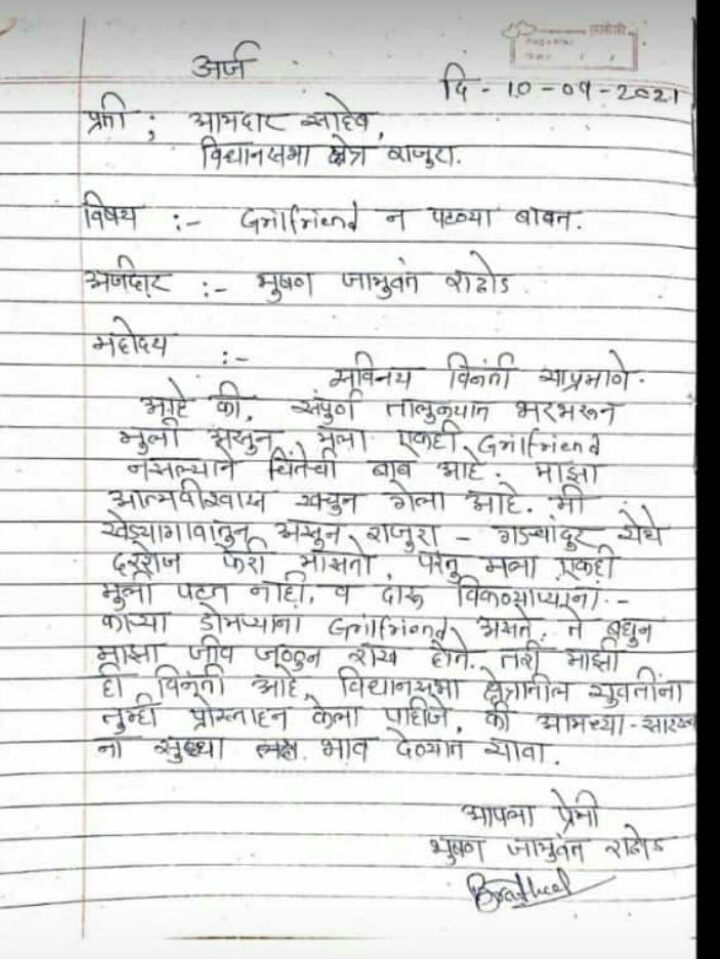 अर्ज
दि - 10-09-2021
प्रती ; आमदार साहेब,
विधानसभा क्षेत्र राजुरा.
विषय :- Grilfriend न पटण्या बाबत.
अर्जदार :- भुषण जामुवंत राठोड
महोदय :-
सविनय विनंती याप्रमाणे.
आहे की, संपुर्ण तालुक्यात भरभरून
मुली असुन मला एकही Grilfriend
नसल्याने चिंतेची बाब आहे. माझा
आत्मवीश्वास खचुन गेला आहे. मी
खेड्यागावातुन असुन राजुरा - गडचांदुर येथे
दररोज फेरी मारतो, परंतु मला एकही
मुली पटत नाही, व दारू विकण्याऱ्यांना -
काऱ्या डोमऱ्याना Grilfriend असते. ते बघुन
माझा जीव जळुन राख होते. तरी माझी
ही विनंती आहे, विधानसभा क्षेत्रातील युवतींना
तुम्ही प्रोस्ताहन केला पाहीजे, की आमच्या - सारख्या
ना सुध्धा भाव देण्यात यावा.
आपला प्रेमी
भुषण जामुवंत राठोड